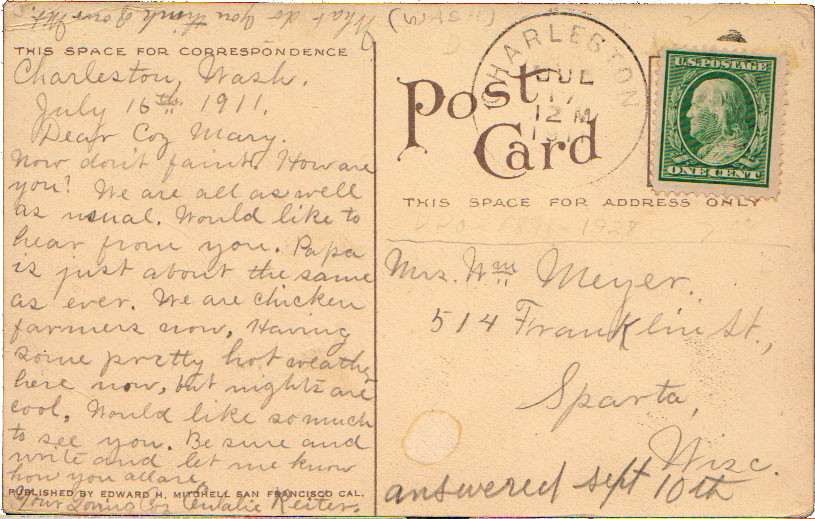 What do you think of our Mt.?
THIS SPACE FOR CORRESPONDENCE
Charleston, Wash.
July 16th, 1911.
Dear Coz Mary.
Now don't faint. How are
you? We are all as well
as usual. Would like to
hear from you. Papa
is just about the same
as ever. We are chicken
farmers now. Having
some pretty hot weather
here now, but nights are
cool. Would like so much
to see you. Be sure and
write and let me know
how you all are.
PUBLISHED BY EDWARD H. MITCHELL SAN FRANCISCO CAL.
Your Loving Coz Eulalie Reiter.
(WASH)
D
CHARLESTON
JUL
17
12 M
Post
Card
U.S. POSTAGE
ONE CENT
THIS SPACE FOR ADDRESS ONLY
DPO 1891-1928
Mrs. Wm Meyer.
514 Franklin St.,
Sparta,
Wisc.
answered sept 10th